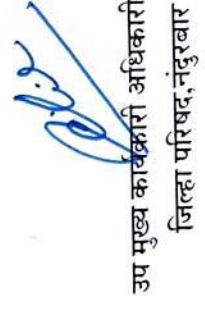 उप मुख्य कार्यकारी अधिकारी
जिल्हा परिषद,नंदुरबार